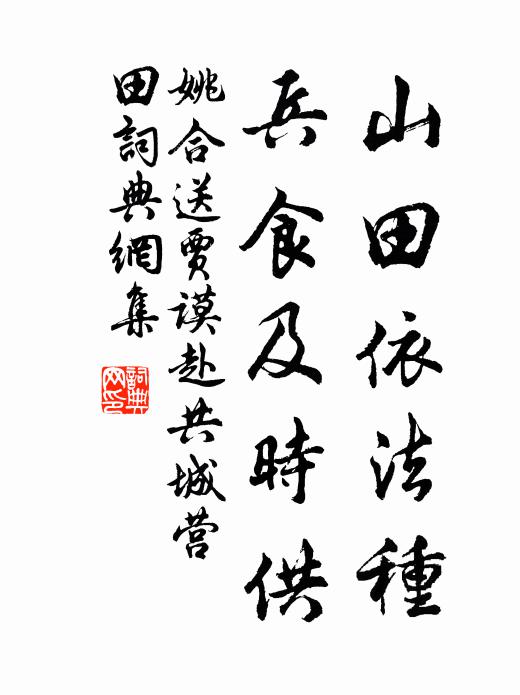 山田依法種
兵食及時供
姚合送賈謨赴共城营
田詞典網集
詞典
网印